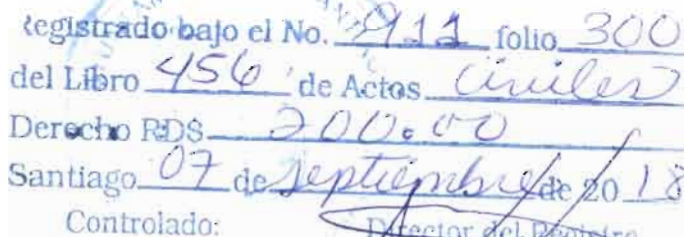 Registrado bajo el No. 911 folio 300
del Libro 456 de Actos Civiles
Derecho RD$ 200.00
Santiago 07 de Septiembre de 2018
Controlado: Director del Registro